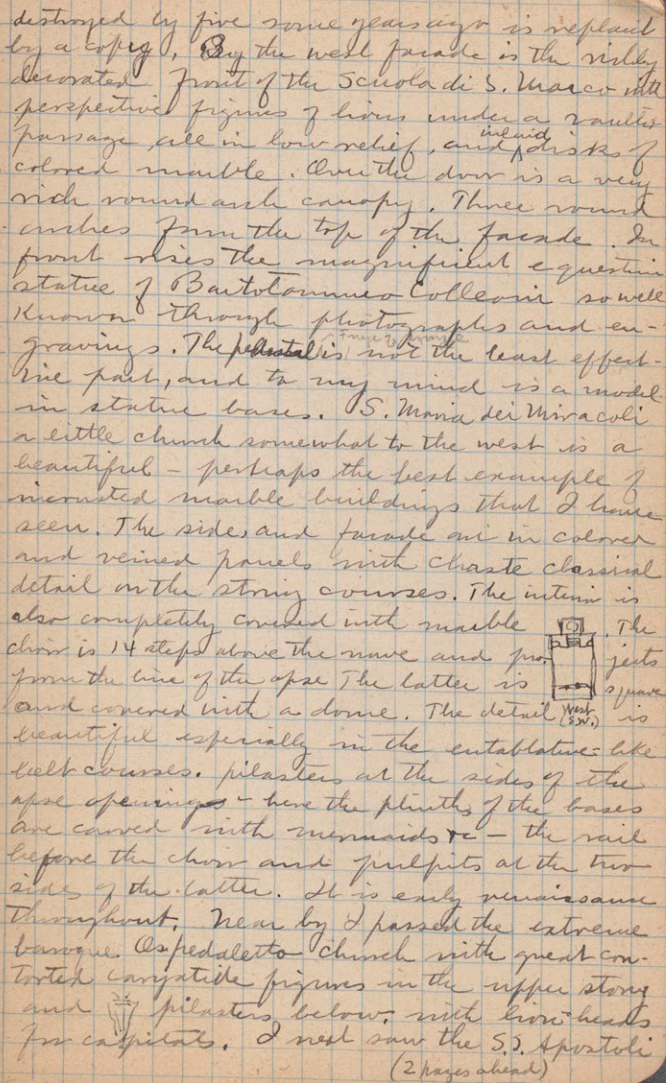 destroyed by fire some years ago is replaced
by a copy. By the west facade is the richly
decorated front of the Scuola di S. Marco with
perspective figures of lions under a vaulted
passage, all in low relief, and inlaid disks of
colored marble. Over the door is a very
rich round arch canopy. Three round
arches form the top of the facade. In
front rises the magnificent equestrian
statue of Bartolommeo Colleoni so well
known through photographs and en-
gravings. The pedestal is not the least effect-
ive part, and to my mind is a model
in statue bases. S. Maria dei Miracoli
a little church somewhat to the west is a
beautiful - perhaps the best example of
incrusted marble buildings that I have
seen. The sides and facade are in colored
and veined panels with chaste classical
detail on the string courses. The interior is
also completely covered with marble. The
choir is 14 steps above the nave and projects
from the line of the apse The latter is square
and covered with a dome. The detail is
West
(S.W.)
beautiful especially in the entablature-like
belt courses. pilasters at the sides of the
apse opening - here the plinths of the bases
are carved with mermaids &c - the rail
before the choir and pulpits at the two
sides of the latter. It is early renaissance
throughout. Near by I passed the extreme
baroque Ospedaletto church with great con-
torted caryatide figures in the upper story
and pilasters below, with lion-heads
for capitals. I next saw the S.S. Apostoli
(2 pages ahead)